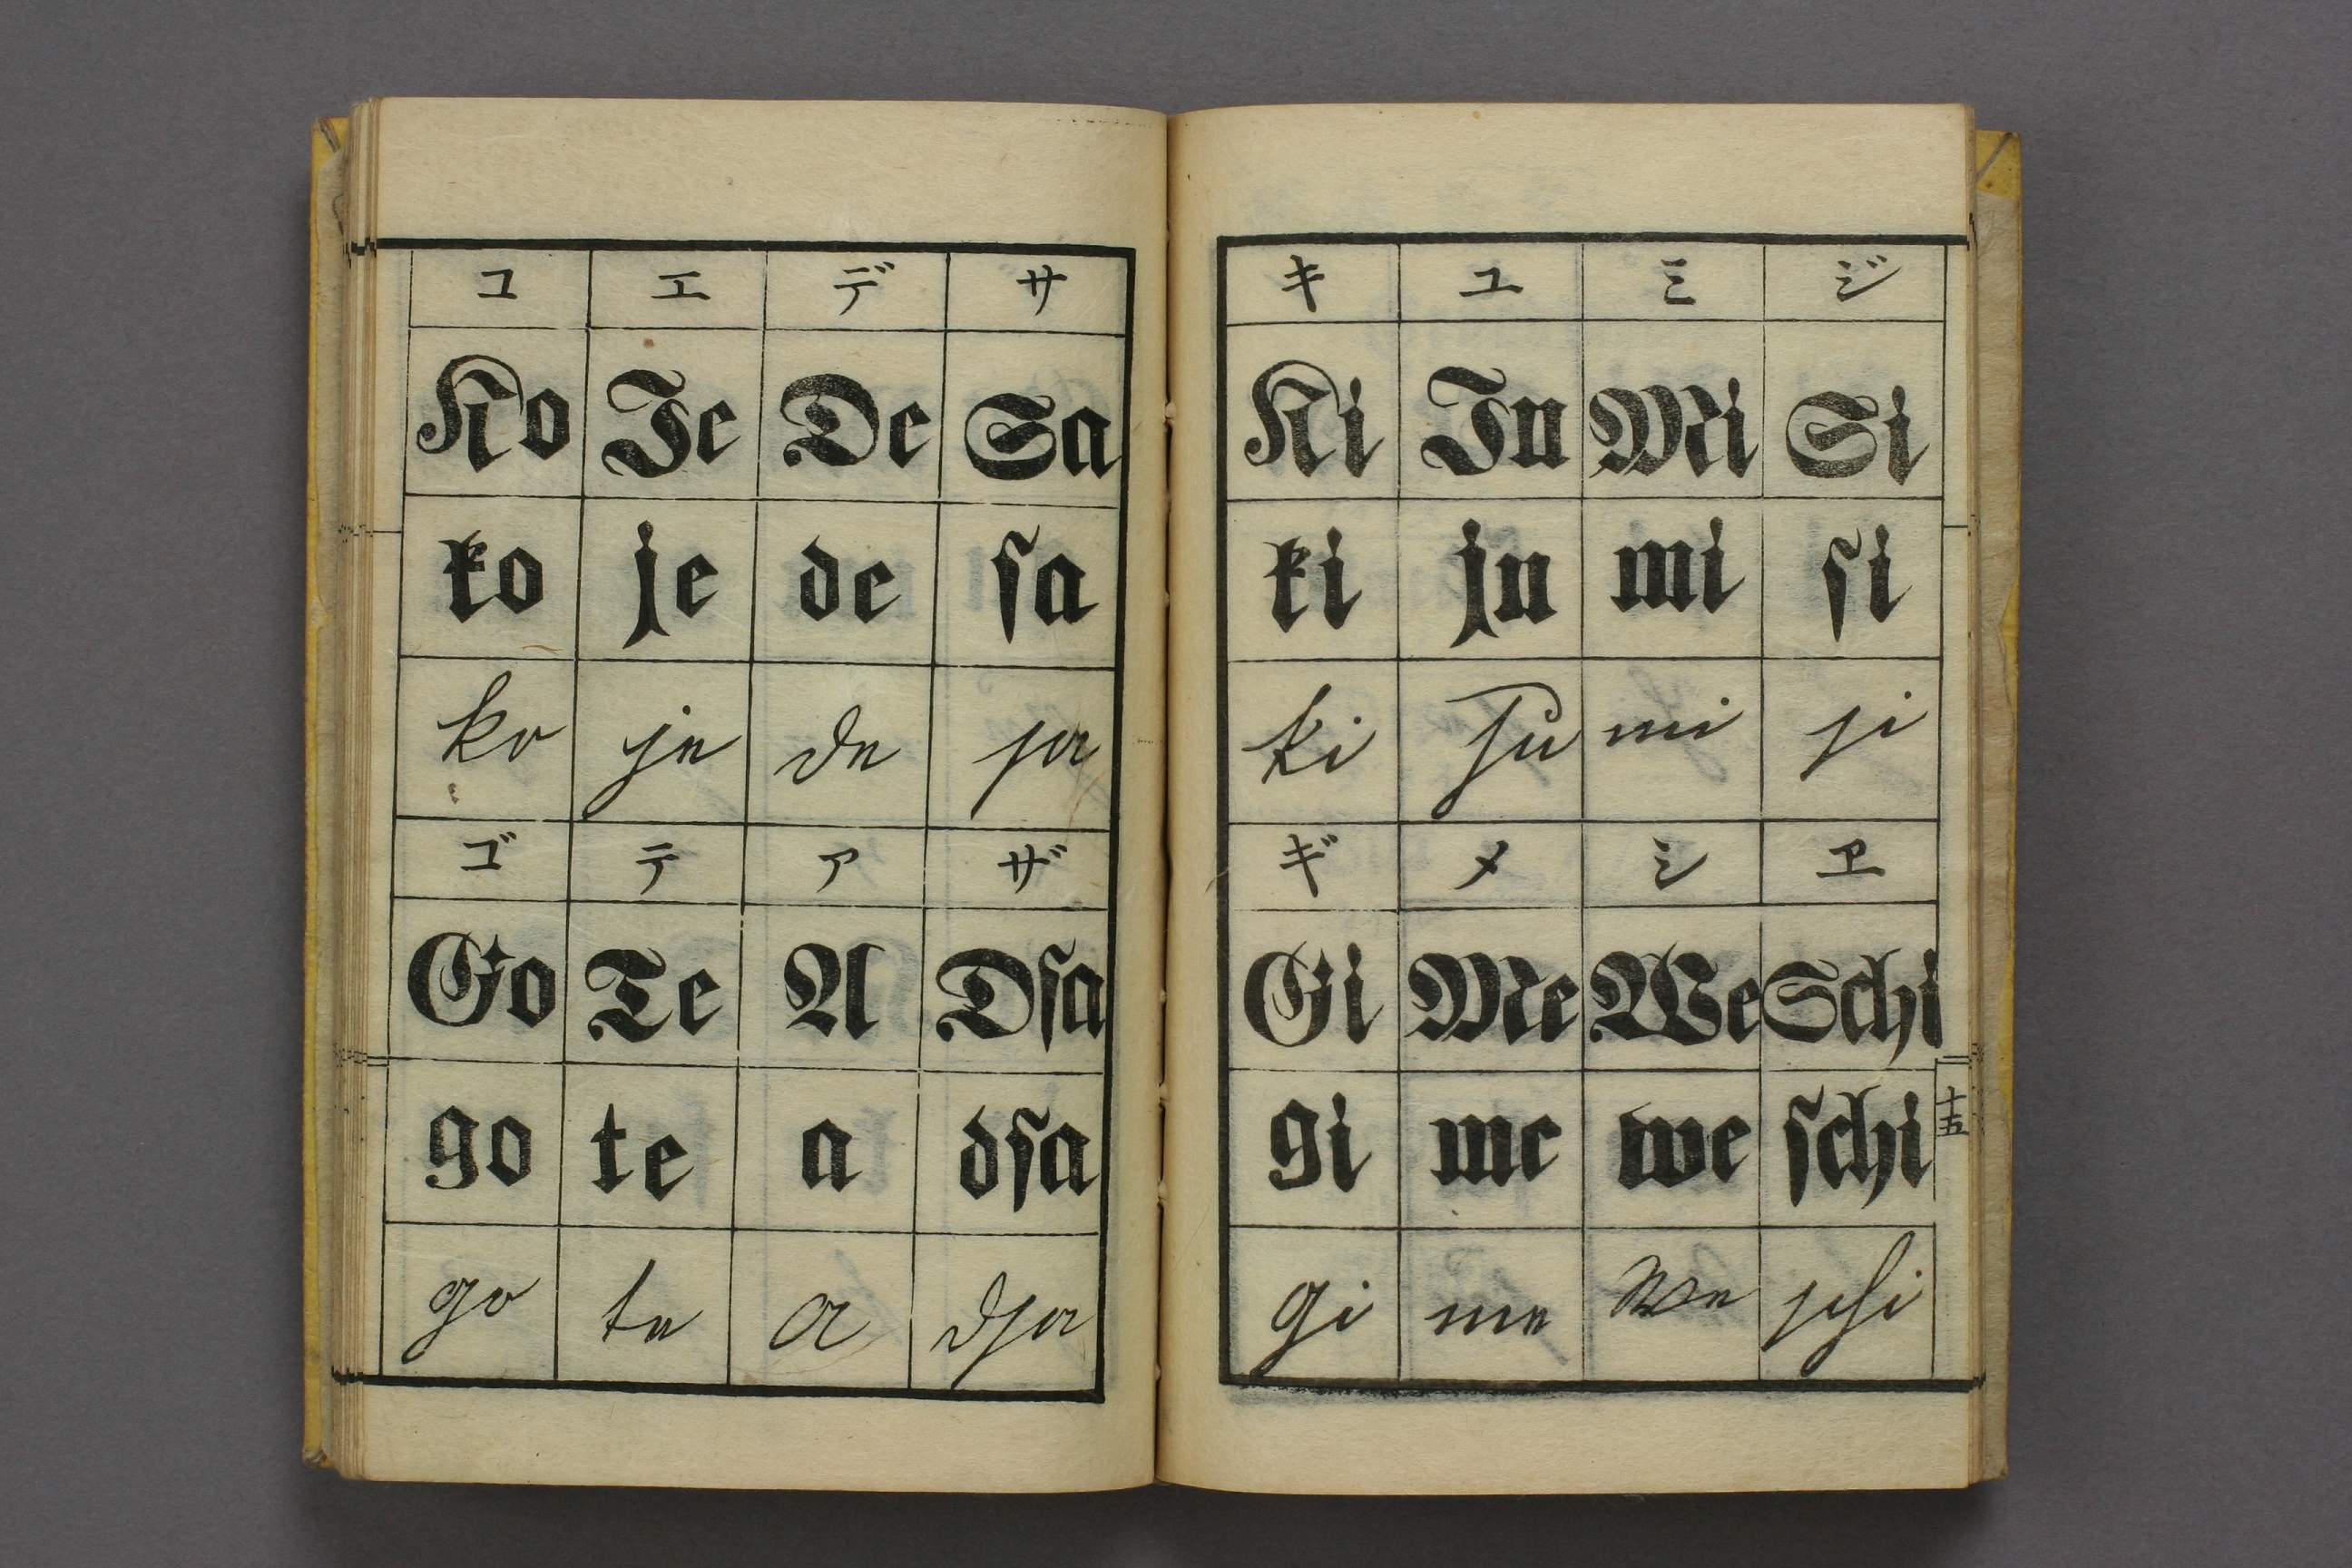 コ エ デ サ
Ko Je De Sa
ko je de ſa
ko je de ſa
ゴ テ ア ザ
Go Te A Dſa
go te a dſa
go te a dſa
キ ユ ミ ジ
Ki Ju Mi Si
ki ju mi ſi
ki Ju mi ſi
ギ メ シ ヱ
Gi Me We Schi
gi me we ſchi
gi me We ſchi
十五